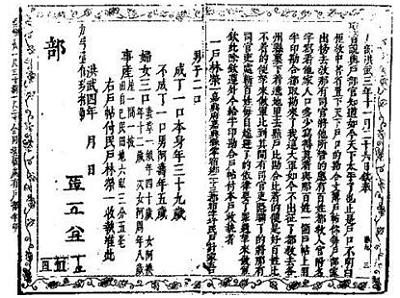 戶部洪武三年十一月二十六日欽奉
聖旨說與戶部官知道如今天下太平了也止是戶口不明白
俚教中書省置下天下戶口的勘合文簿戶帖你每戶部家
出榜去教那有司官將他所管的應有百姓都教入官附名
字寫着他家人口多少寫得真着與那百姓一箇戶帖上用
半印勘合都取勘來了我這大軍如今不出征了都教去各
州縣裏下着遶地里去點戶比勘合比着的便是好百姓比
不着的便拿來做軍比到其間有司官吏隱瞞了的將那有
司官吏處斬百姓每自躲避了的依律要了罪過拿來做軍
欽此除欽遵外今給半印勘合戶帖付本戶收執者
一戶林榮一嘉興府嘉興縣零宿鄉二十三都宿字圩民戶計家五口
男子二口
成丁一口本身年三十九歲
不成丁一口男阿壽年五歲
婦女三口妻章一娘年四十歲 女阿換
年十二歲 次女阿周年八歲
事產屋一間一披
田自己民田地六畝三分五毫
右戶帖付民戶林榮一收執准此
洪武四年 月 日
部